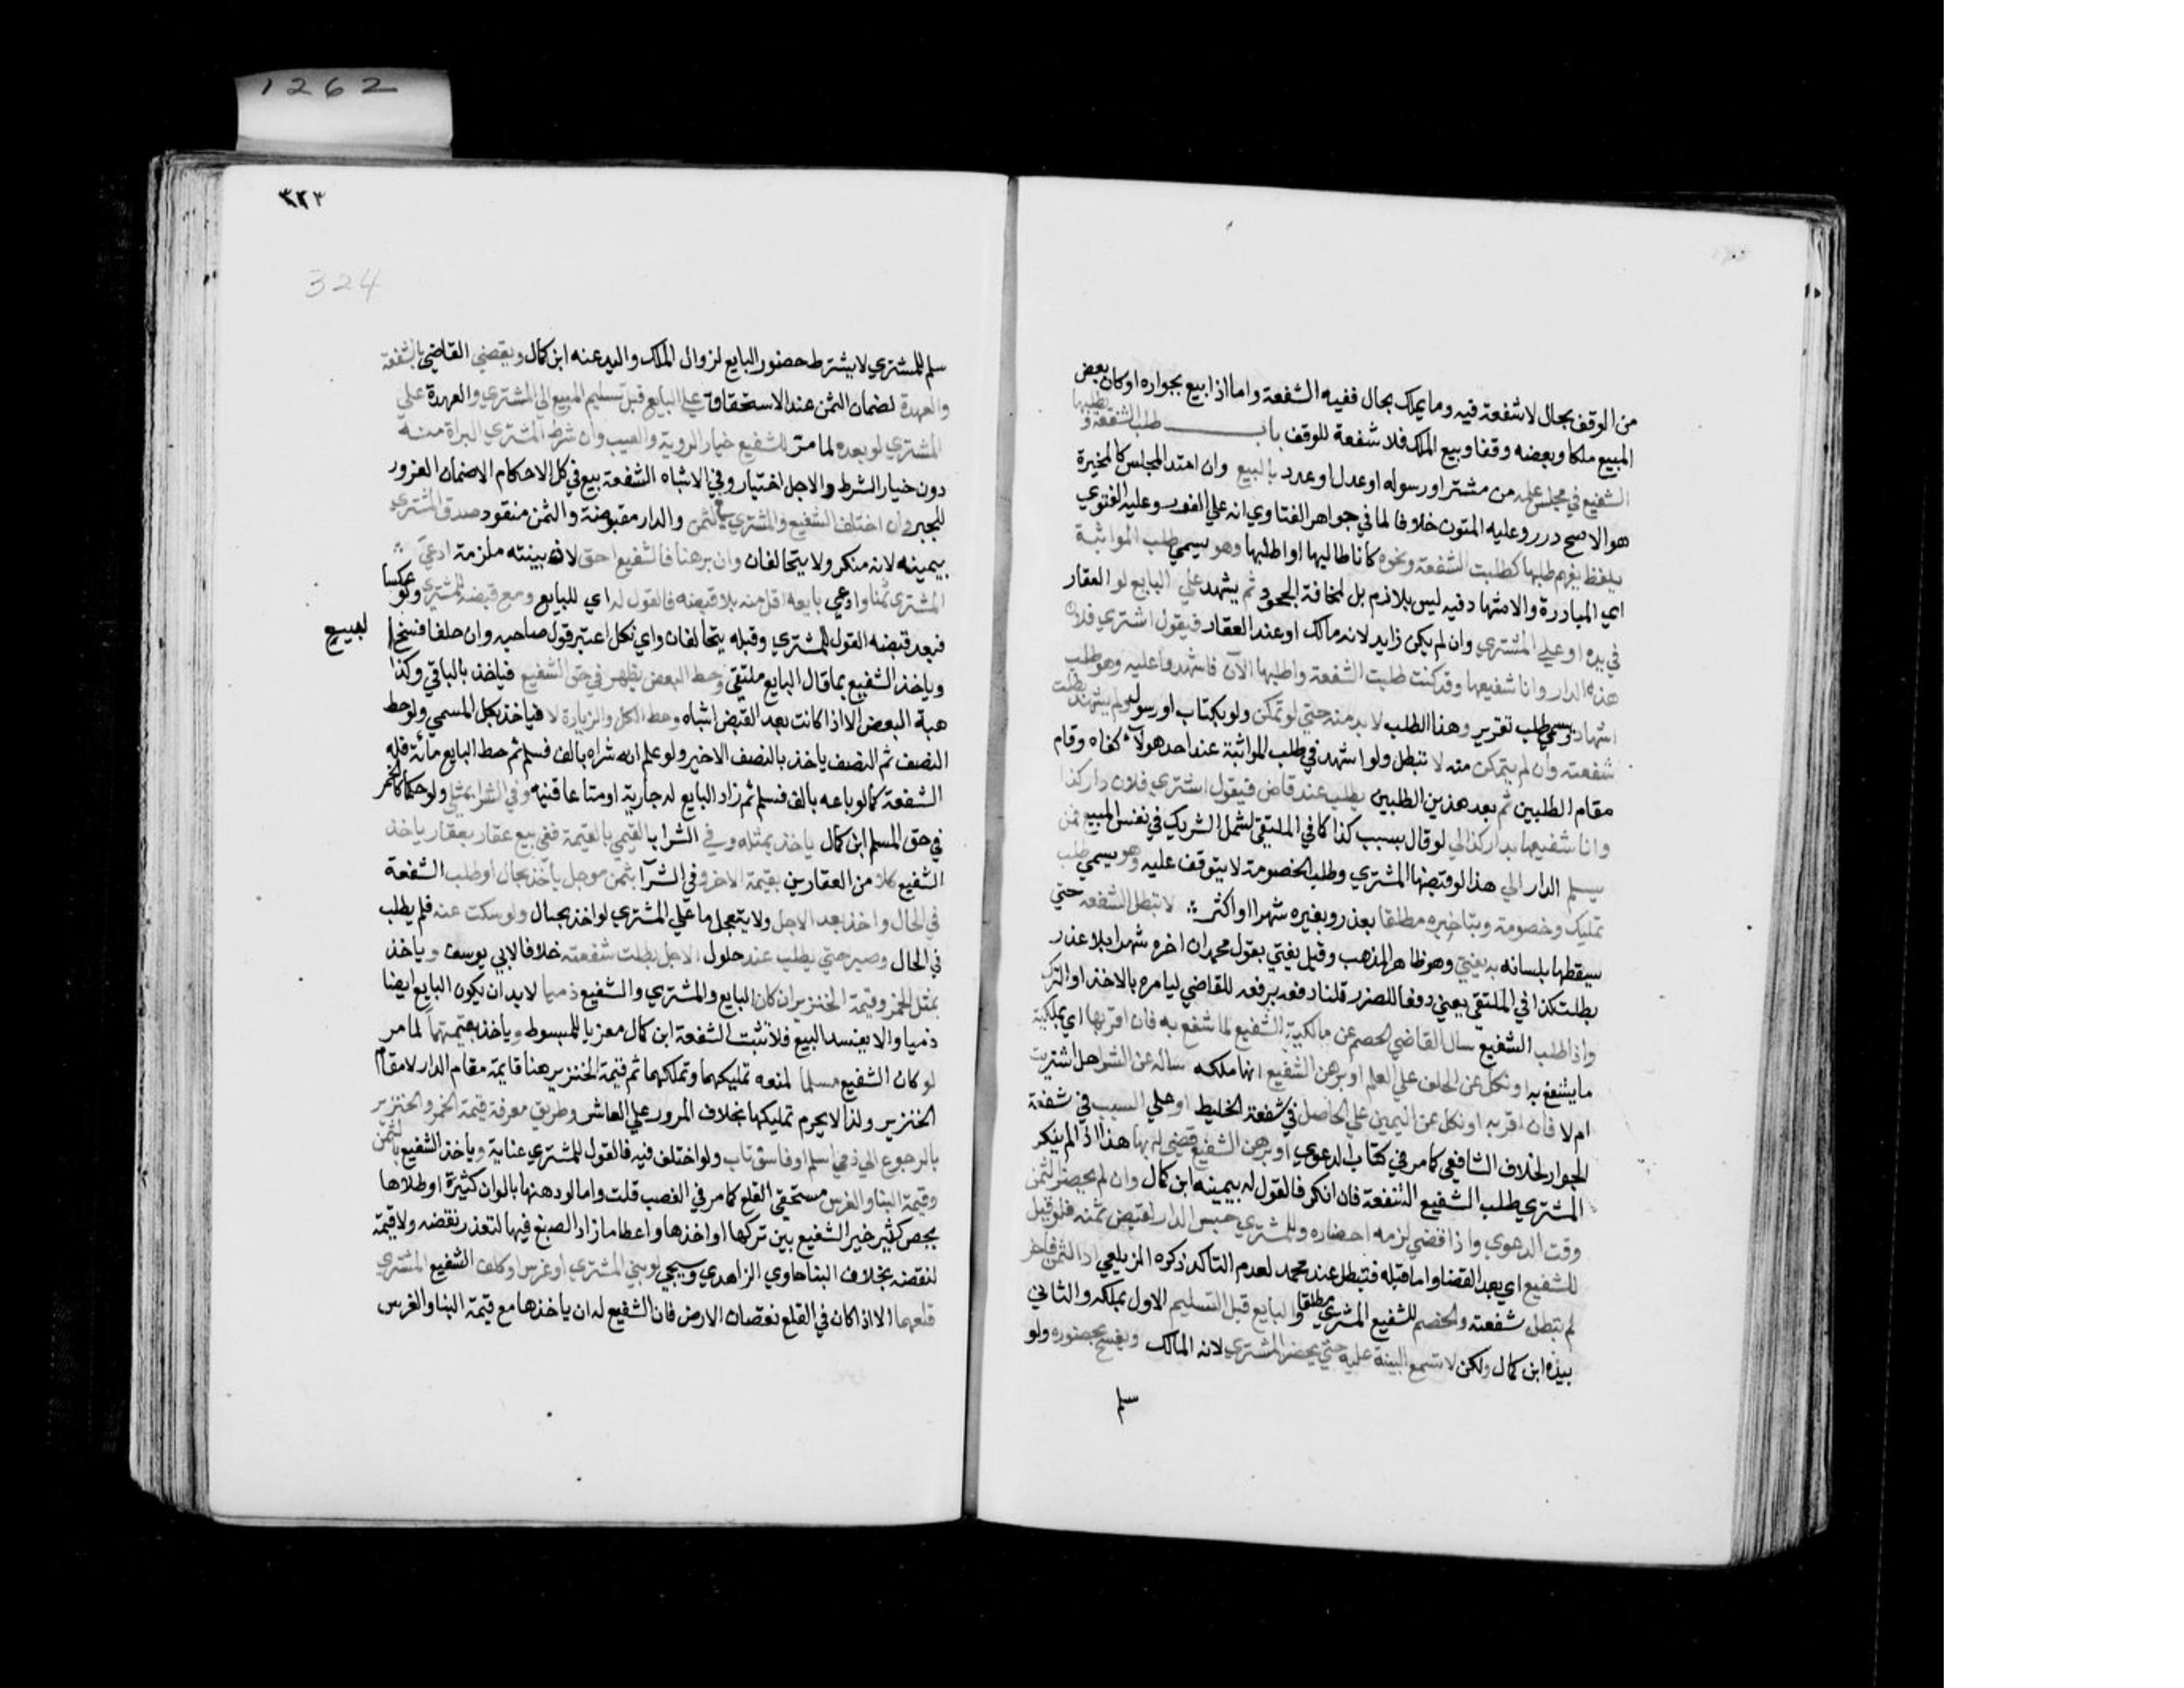 من الوقف بحال لا شفعة فيه وما يملك بحال ففيه الشفعة واما اذا بيع بجواره او كان بعض
المبيع ملكا وبعضه وقفا وبيع الملك فلا شفعة للوقف باب طلب الشفعة و يطلبها
الشفيع في مجلس علمه من مشتر او رسوله او عدل او عدد بالبيع وان امتد المجلس كالمخيرة
هو الاصح درر وعليه المتون خلافا لما في جواهر الفتاوي انه علي الفور وعليه الفتوي
بلفظ يفهم طلبها كطلبت الشفعة ونحوه كانا طالبها او اطلبها وهو يسمي طلب المواثبة
اي المبادرة والاشهاد فيه ليس بلازم بل لمخافة الجحود ثم يشهد علي البايع لو العقار
في يده او علي المشتري وان لم يكن ذا يد لانه مالك او عند العقار فيقول اشتري فلان
هذه الدار وانا شفيعها وقد كنت طلبت الشفعة واطلبها الآن فاشهدوا عليه وهو طلب
اشهاد ويسمي طلب تقرير وهذا الطلب لا بد منه حتي لو تمكن ولو بكتاب او رسول ولم يشهد بطلت
شفعته وان لم يتمكن منه لا تبطل ولو اشهد في طلب المواثبة عند احد هولآء كفاه وقام
مقام الطلبين ثم بعد هذين الطلبين يطلب عند قاض فيقول اشتري فلان دار كذا
وانا شفيعها بدار كذا لي لو قال بسبب كذا كما في الملتقي لشمل الشريك في نفس المبيع فمره
يسلم الدار الي هذا لو قبضها المشتري وطلب الخصومة لا يتوقف عليه وهو يسمي طلب
تمليك وخصومة وبتاخيره مطلقا بعذر وبغيره شهرا او اكثر لا تبطل الشفعة حتي
يسقطها بلسانه به يفتي وهو ظاهر المذهب وقيل يفتي بقول محمد ان اخره شهرا بلا عذر
بطلت كذا في الملتقي يعني دفعا للضرر قلنا دفعه برفعه للقاضي ليامره بالاخذ او الترك
واذا طلب الشفيع سال القاضي الخصم عن مالكية الشفيع لما شفع به فان اقر بها اي بملكية
ما يشفع به او نكل عن الحلف علي العلم او برهن الشفيع انها ملكه ساله عن الشرا هل اشتريت
ام لا فان اقر به او نكل عن اليمين علي الحاصل في شفعة الخليط او علي السبب في شفعة
الجوار لخلاف الشافعي كما مر في كتاب الدعوي او برهن الشفيع قضي له بها هذا اذا لم ينكر
المشتري طلب الشفيع الشفعة فان انكر فالقول له بيمينه ابن كمال وان لم يحضر الثمن
وقت الدعوي واذا قضي لزمه احضاره وللمشتري حبس الدار ليقبض ثمنه فلو قيل
للشفيع اي بعد القضا واما قبله فتبطل عند محمد لعدم التاكد ذكره الزيلعي اد الثمن فاخر
لم تبطل شفعته والخصم للشفيع المشتري مطلقا والبايع قبل التسليم الاول بملكه والثاني
بيده ابن كمال ولكن لا تسمع البينة عليه حتي يحضر المشتري لانه المالك ويفسخ بحضوره ولو
سلم
٣٢٣
324
1262
سلم للمشتري لا يشترط حضور البايع لزوال الملك واليد عنه ابن كمال ويقضي القاضي بالشفعة
والعهدة لضمان الثمن عند الاستحقاق علي البايع قبل تسليم المبيع الي المشتري والعهدة علي
المشتري لو بعده لما مر للشفيع خيار الروية والعيب وان شرط المشتري البراة منه
دون خيار الشرط والاجل اختيار وفي الاشباه الشفعة بيع في كل الاحكام الا ضمان الغرور
للجبر وان اختلف الشفيع والمشتري في الثمن والدار مقبوضة والثمن منقود صدق المشتري
بيمينه لانه منكر ولا يتحالفان وان برهنا فالشفيع احق لان بينته ملزمة ادعي
المشتري ثمنا وادعي بايعه اقل منه بلا قبضه فالقول له اي للبايع ومع قبضه للمشتري ولو عكسا
فبعد قبضه القول للمشتري وقبله يتحالفان واي نكل اعتبر قول صاحبه وان حلفا فسخ المبيع
وياخذ الشفيع بما قال البايع ملتقي وحط البعض يظهر في حق الشفيع فياخذ بالباقي وكذا
هبة البعض الا اذا كانت بعد القبض اشباه وحط الكل والزيادة لا فياخذ بكل المسمي ولو حط
النصف ثم النصف ياخذ بالنصف الاخير ولو علم انه شراه بالف فسلم ثم حط البايع مائة فله
الشفعة كما لو باعه بالف فسلم ثم زاد البايع له جارية او متاعا قنيه وفي الشرا بمثلي ولو حكما كالخمر
في حق المسلم ابن كمال ياخذ بمثله وفي الشرا بالقيمي بالقيمة ففي بيع عقار بعقار ياخذ
الشفيع كلا من العقارين بقيمة الاخر وفي الشرآ بثمن موجل ياخذ بحال او طلب الشفعة
في الحال واخذ بعد الاجل ولا يتعجل ما علي المشتري لو اخذ بحال ولو سكت عنه فلم يطلب
في الحال وصبر حتي يطلب عند حلول الاجل بطلت شفعته خلافا لابي يوسف وياخذ
بمثل الخمر وقيمة الخنزير ان كان البايع والمشتري والشفيع ذميا لا بد ان يكون البايع ايضا
ذميا والا يفسد البيع فلا تثبت الشفعة ابن كمال معزيا للمبسوط وياخذ بقيمتهما لما مر
لو كان الشفيع مسلما لمنعه تمليكهما وتملكهما ثم قيمة الخنزير هنا قايمة مقام الدار لا مقام
الخنزير ولذا لا يحرم تمليكها بخلاف المرور علي العاشر وطريق معرفة قيمة الخمر والخنزير
بالرجوع الي ذمي اسلم او فاسق تاب ولو اختلف فيه فالقول للمشتري عناية وياخذ الشفيع بالثمن
وقيمة البنا والغرس مستحقي القلع كما مر في الغصب قلت واما لو دهنها بالوان كثيرة او طلاها
بجص كثير خير الشفيع بين تركها او اخذها واعطا ما زاد الصبغ فيها لتعذر نقضه ولا قيمة
لنقضه بخلاف البنا حاوي الزاهدي وسيجي لو بني المشتري او غرس او كلف الشفيع المشتري
قلعهما الا اذا كان في القلع نقصان الارض فان الشفيع له ان ياخذها مع قيمة البنا والغرس